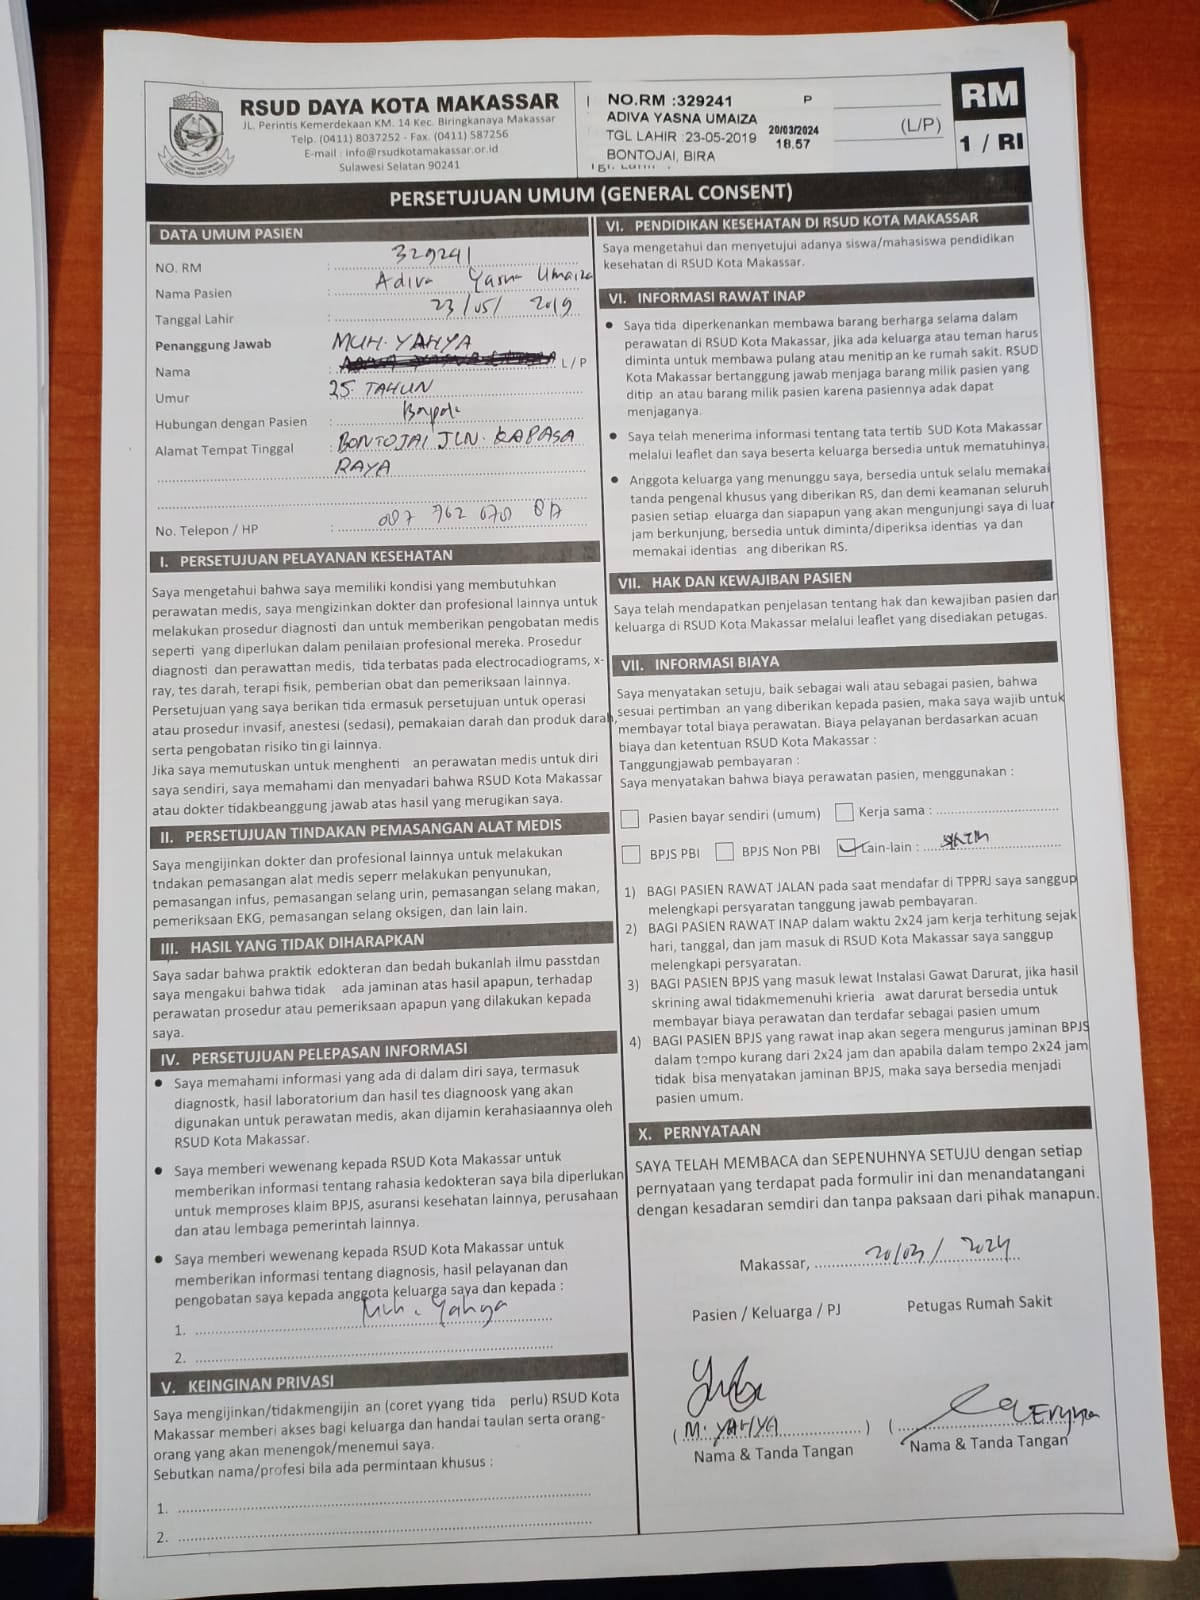 RSUD DAYA KOTA MAKASSAR
JL. Perintis Kemerdekaan KM. 14 Kec. Biringkanaya Makassar
Telp. (0411) 8037252 - Fax. (0411) 587256
E-mail : info@rsudkotamakassar.or.id
Sulawesi Selatan 90241
NO.RM :329241 P
ADIVA YASNA UMAIZA
TGL LAHIR :23-05-2019 20/03/2024
BONTOJAI, BIRA 18.57
(L/P)
RM
1 / RI
PERSETUJUAN UMUM (GENERAL CONSENT)
DATA UMUM PASIEN
NO. RM : 329241
Nama Pasien : Adiva Yasna Umaiza
Tanggal Lahir : 23/05/ 2019
Penanggung Jawab MUH. YAHYA
Nama : L/P
Umur 25 TAHUN
Hubungan dengan Pasien : Bapak
Alamat Tempat Tinggal : BONTOJAI JLN. KAPASA
RAYA
No. Telepon / HP :
I. PERSETUJUAN PELAYANAN KESEHATAN
Saya mengetahui bahwa saya memiliki kondisi yang membutuhkan
perawatan medis, saya mengizinkan dokter dan profesional lainnya untuk
melakukan prosedur diagnosti dan untuk memberikan pengobatan medis
seperti yang diperlukan dalam penilaian profesional mereka. Prosedur
diagnosti dan perawattan medis, tida terbatas pada electrocadiograms, x-
ray, tes darah, terapi fisik, pemberian obat dan pemeriksaan lainnya.
Persetujuan yang saya berikan tida ermasuk persetujuan untuk operasi
atau prosedur invasif, anestesi (sedasi), pemakaian darah dan produk darah,
serta pengobatan risiko tin gi lainnya.
Jika saya memutuskan untuk menghenti an perawatan medis untuk diri
saya sendiri, saya memahami dan menyadari bahwa RSUD Kota Makassar
atau dokter tidakbeanggung jawab atas hasil yang merugikan saya.
II. PERSETUJUAN TINDAKAN PEMASANGAN ALAT MEDIS
Saya mengijinkan dokter dan profesional lainnya untuk melakukan
tndakan pemasangan alat medis seperr melakukan penyunukan,
pemasangan infus, pemasangan selang urin, pemasangan selang makan,
pemeriksaan EKG, pemasangan selang oksigen, dan lain lain.
III. HASIL YANG TIDAK DIHARAPKAN
Saya sadar bahwa praktik edokteran dan bedah bukanlah ilmu passtdan
saya mengakui bahwa tidak ada jaminan atas hasil apapun, terhadap
perawatan prosedur atau pemeriksaan apapun yang dilakukan kepada
saya.
IV. PERSETUJUAN PELEPASAN INFORMASI
• Saya memahami informasi yang ada di dalam diri saya, termasuk
diagnostk, hasil laboratorium dan hasil tes diagnoosk yang akan
digunakan untuk perawatan medis, akan dijamin kerahasiaannya oleh
RSUD Kota Makassar.
• Saya memberi wewenang kepada RSUD Kota Makassar untuk
memberikan informasi tentang rahasia kedokteran saya bila diperlukan
untuk memproses klaim BPJS, asuransi kesehatan lainnya, perusahaan
dan atau lembaga pemerintah lainnya.
• Saya memberi wewenang kepada RSUD Kota Makassar untuk
memberikan informasi tentang diagnosis, hasil pelayanan dan
pengobatan saya kepada anggota keluarga saya dan kepada :
1. Muh. Yahya
2.
V. KEINGINAN PRIVASI
Saya mengijinkan/tidakmengijin an (coret yyang tida perlu) RSUD Kota
Makassar memberi akses bagi keluarga dan handai taulan serta orang-
orang yang akan menengok/menemui saya.
Sebutkan nama/profesi bila ada permintaan khusus :
1.
2.
VI. PENDIDIKAN KESEHATAN DI RSUD KOTA MAKASSAR
Saya mengetahui dan menyetujui adanya siswa/mahasiswa pendidikan
kesehatan di RSUD Kota Makassar.
VI. INFORMASI RAWAT INAP
• Saya tida diperkenankan membawa barang berharga selama dalam
perawatan di RSUD Kota Makassar, jika ada keluarga atau teman harus
diminta untuk membawa pulang atau menitip an ke rumah sakit. RSUD
Kota Makassar bertanggung jawab menjaga barang milik pasien yang
ditip an atau barang milik pasien karena pasiennya adak dapat
menjaganya.
• Saya telah menerima informasi tentang tata tertib SUD Kota Makassar
melalui leaflet dan saya beserta keluarga bersedia untuk mematuhinya.
• Anggota keluarga yang menunggu saya, bersedia untuk selalu memakai
tanda pengenal khusus yang diberikan RS, dan demi keamanan seluruh
pasien setiap eluarga dan siapapun yang akan mengunjungi saya di luar
jam berkunjung, bersedia untuk diminta/diperiksa identias ya dan
memakai identias ang diberikan RS.
VII. HAK DAN KEWAJIBAN PASIEN
Saya telah mendapatkan penjelasan tentang hak dan kewajiban pasien dan
keluarga di RSUD Kota Makassar melalui leaflet yang disediakan petugas.
VII. INFORMASI BIAYA
Saya menyatakan setuju, baik sebagai wali atau sebagai pasien, bahwa
sesuai pertimban an yang diberikan kepada pasien, maka saya wajib untuk
membayar total biaya perawatan. Biaya pelayanan berdasarkan acuan
biaya dan ketentuan RSUD Kota Makassar :
Tanggungjawab pembayaran :
Saya menyatakan bahwa biaya perawatan pasien, menggunakan :
Pasien bayar sendiri (umum) Kerja sama :
BPJS PBI BPJS Non PBI Lain-lain :
1) BAGI PASIEN RAWAT JALAN pada saat mendafar di TPPRJ saya sanggup
melengkapi persyaratan tanggung jawab pembayaran.
2) BAGI PASIEN RAWAT INAP dalam waktu 2x24 jam kerja terhitung sejak
hari, tanggal, dan jam masuk di RSUD Kota Makassar saya sanggup
melengkapi persyaratan.
3) BAGI PASIEN BPJS yang masuk lewat Instalasi Gawat Darurat, jika hasil
skrining awal tidakmemenuhi krieria awat darurat bersedia untuk
membayar biaya perawatan dan terdafar sebagai pasien umum
4) BAGI PASIEN BPJS yang rawat inap akan segera mengurus jaminan BPJS
dalam tempo kurang dari 2x24 jam dan apabila dalam tempo 2x24 jam
tidak bisa menyatakan jaminan BPJS, maka saya bersedia menjadi
pasien umum.
X. PERNYATAAN
SAYA TELAH MEMBACA dan SEPENUHNYA SETUJU dengan setiap
pernyataan yang terdapat pada formulir ini dan menandatangani
dengan kesadaran semdiri dan tanpa paksaan dari pihak manapun.
Makassar, 20/03/ 2024
Pasien / Keluarga / PJ Petugas Rumah Sakit
(M. YAHYA) ( 
Nama & Tanda Tangan Nama & Tanda Tangan